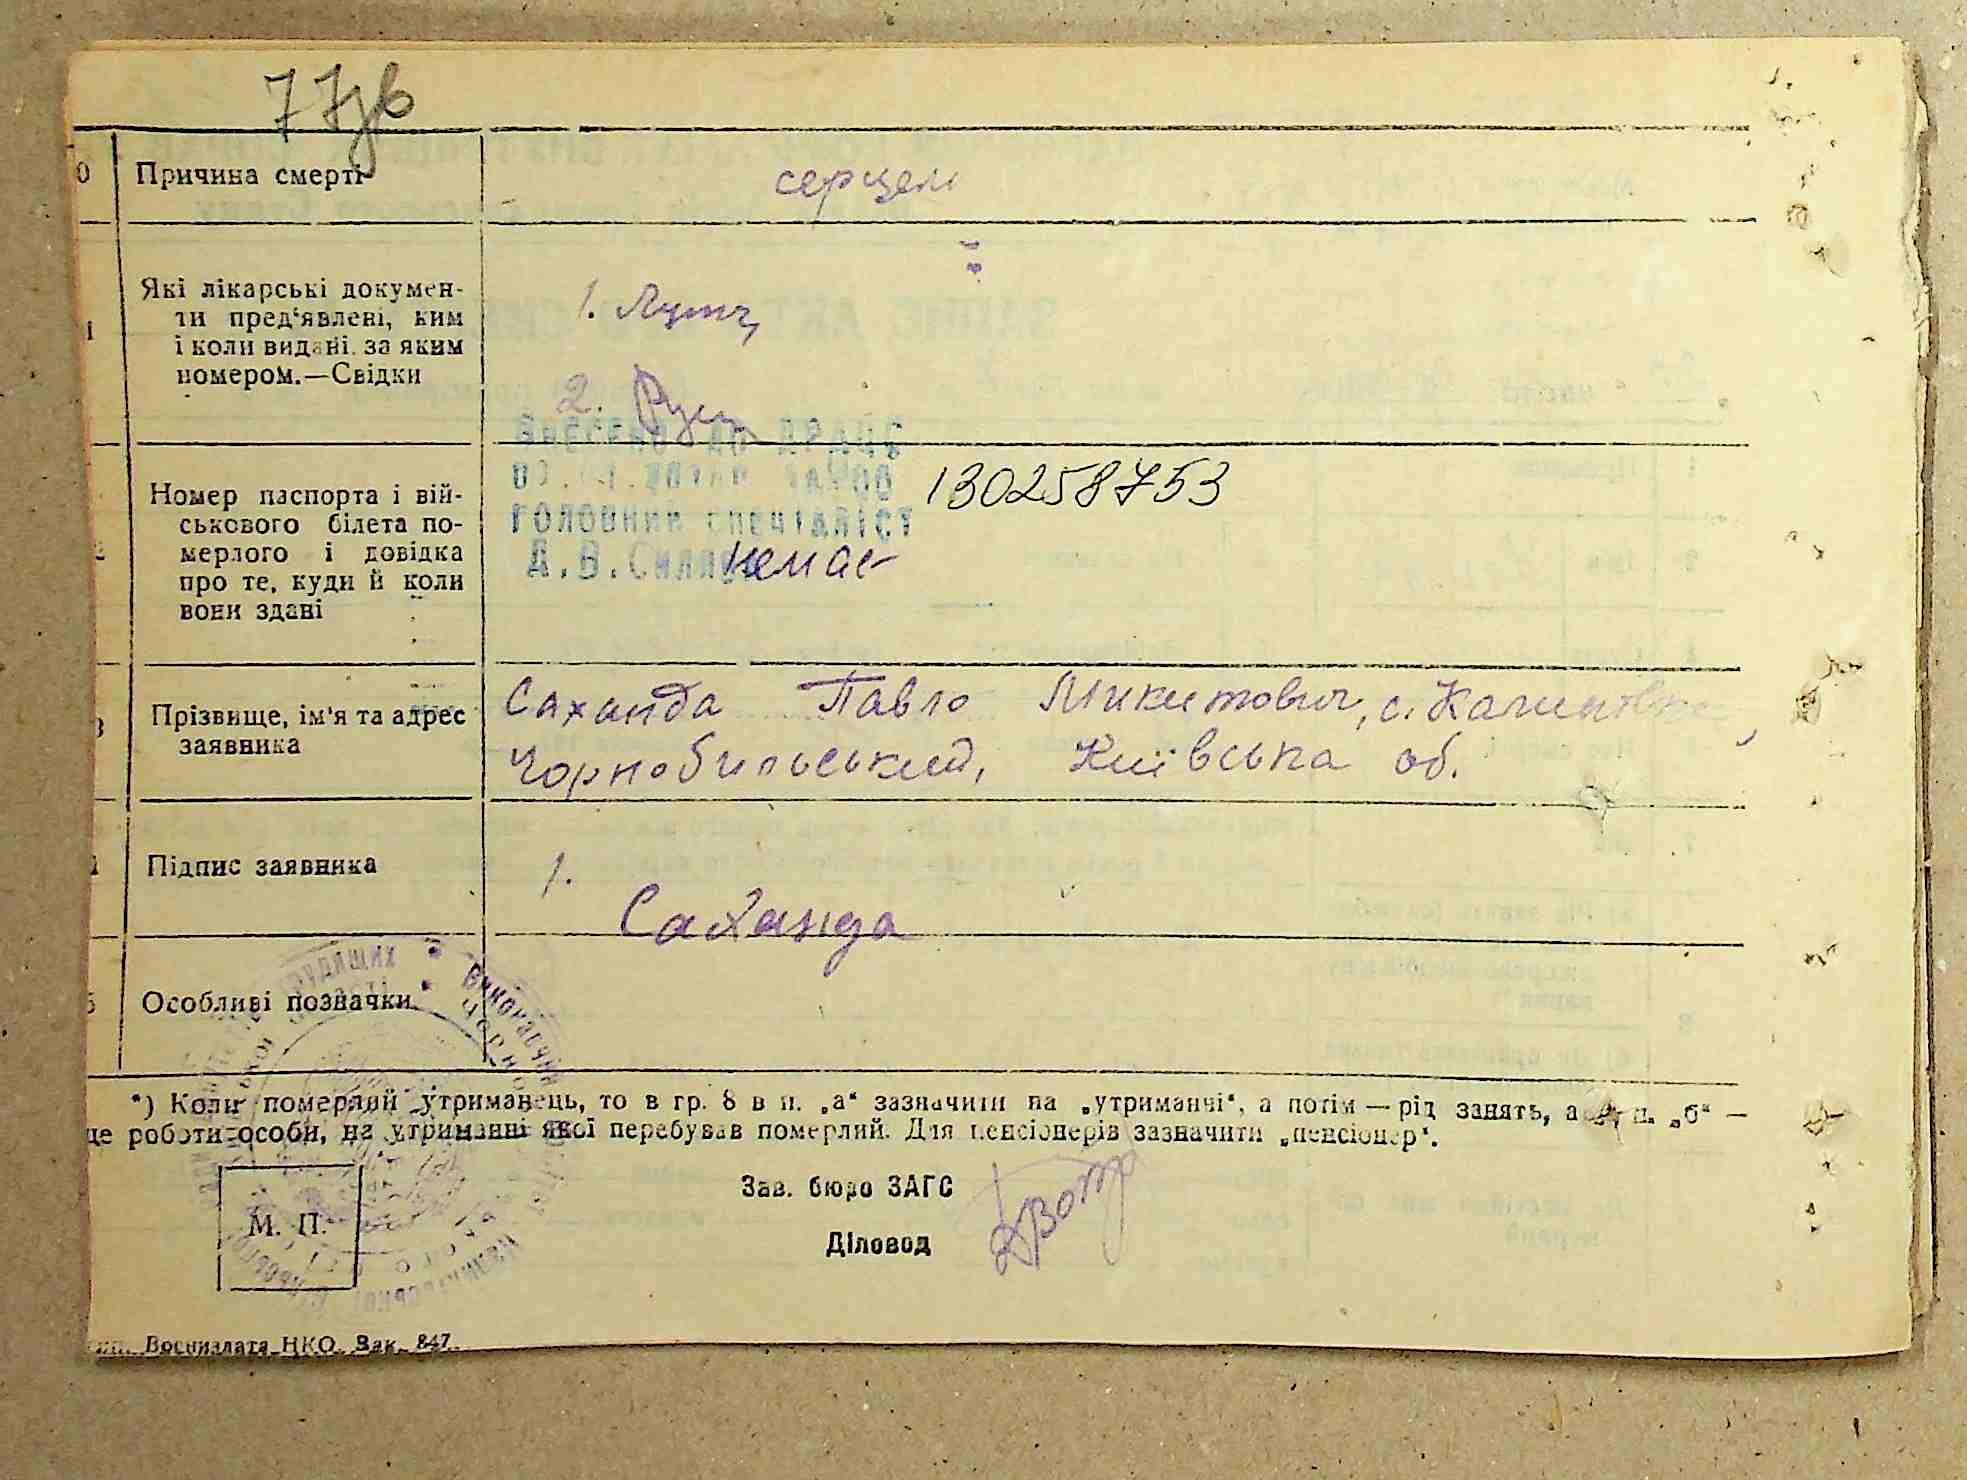 77зв
0 Причина смерті серцем
1 Які лікарські докумен-
ти пред'явлені, ким
і коли видані, за яким
номером.—Свідки
1.
2.
Номер паспорта і вій-
ськового білета по-
мерлого і довідка
про те, куди й коли
вони здані
Внесено до ДРАЦС
130258753
головний спеціаліст
Д.В.
немає
3 Прізвище, ім'я та адрес
заявника
Саханда Павло Микитович, с.
Чорнобильський, Київська об.
Підпис заявника
1.
Саханда
5 Особливі позначки
Виконавчий
*) Коли померлий утриманець, то в гр. 8 в п. „а“ зазначити на „утриманчі“, а потім — рід занять, а п. „б“ —
це роботи особи, на утриманні якої перебував померлий. Для пенсіонерів зазначити „пенсіонер“.
Зав. бюро ЗАГС
М. П.
Діловод
Воениздата НКО. Зак. 847